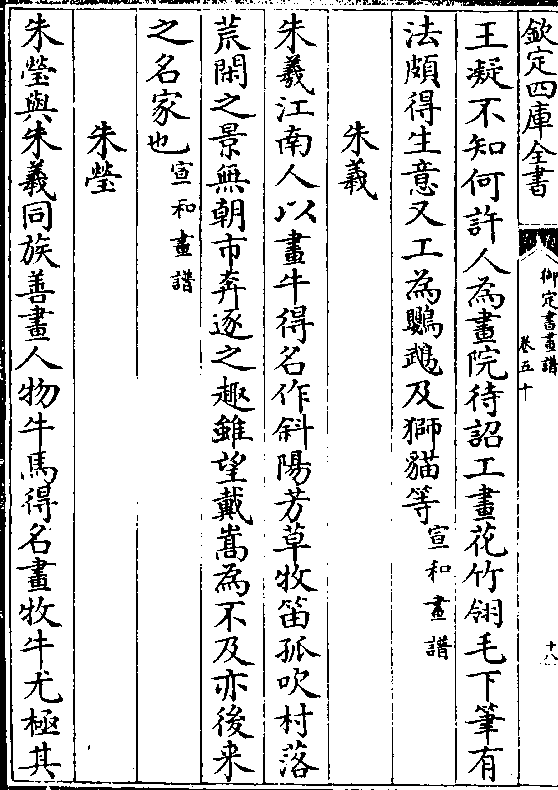 欽定四庫全書
御定書畫譜
卷五十
十八
王凝不知何許人為畫院待詔工畫花竹翎毛下筆有
法頗得生意又工為鸚鵡及獅貓等宣和畫譜
朱羲
朱羲江南人以畫牛得名作斜陽芳草牧笛孤吹村落
荒閑之景無朝市奔逐之趣雖望戴嵩為不及亦後来
之名家也宣和畫譜
朱瑩
朱瑩與朱羲同族善畫人物牛馬得名畫牧牛尤極其